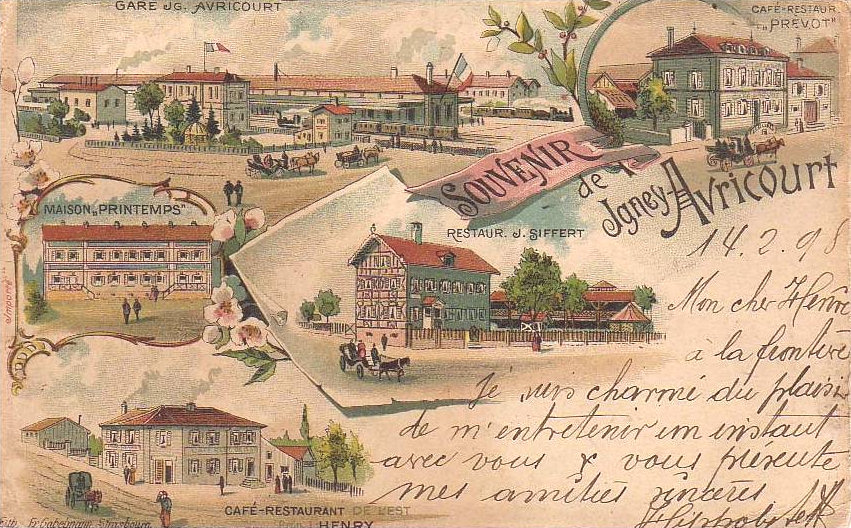 GARE JG. AVRICOURT
CAFÉ-RESTAUR.
„PREVOT"
SOUVENIR
de
Jgney-Avricourt
MAISON „PRINTEMPS"
RESTAUR. J. SIFFERT
14.2.98
Mon cher Henri
à la frontière
Je suis charmé du plaisir
de m'entretenir un instant
avec vous & vous présente
mes amitiés sincères
CAFÉ-RESTAURANT DE L'EST
HENRY
Strasbourg